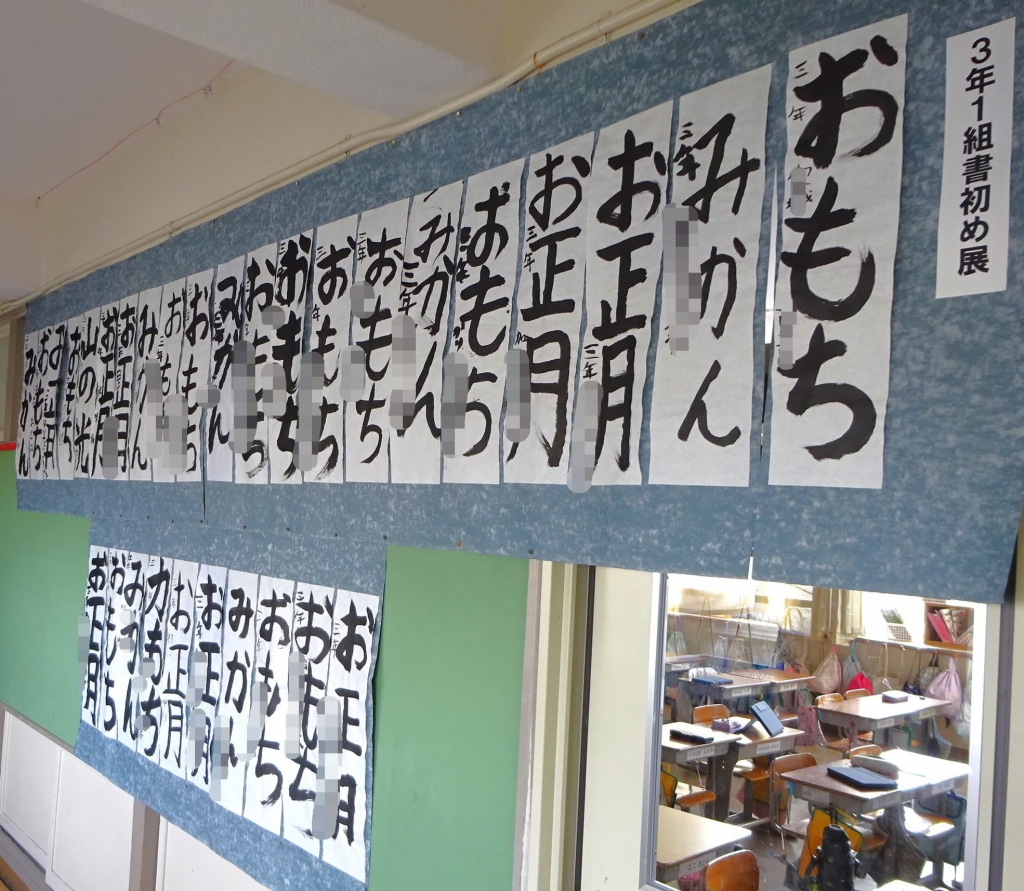 3年1組書初め展
おもち
三年
みかん
三年
お正月
三年
お正月
三年
おもち
三年
みかん
三年
おもち
三年
おもち
三年
おもち
おもち
みかん
おもち
おもち
みかん
お正月
お正月
山の光
おもち
お正月
おもち
みかん
お正月
三年
おもち
三年
おもち
みかん
お正月
三年
お正月
力もち
みかん
おもち
お正月